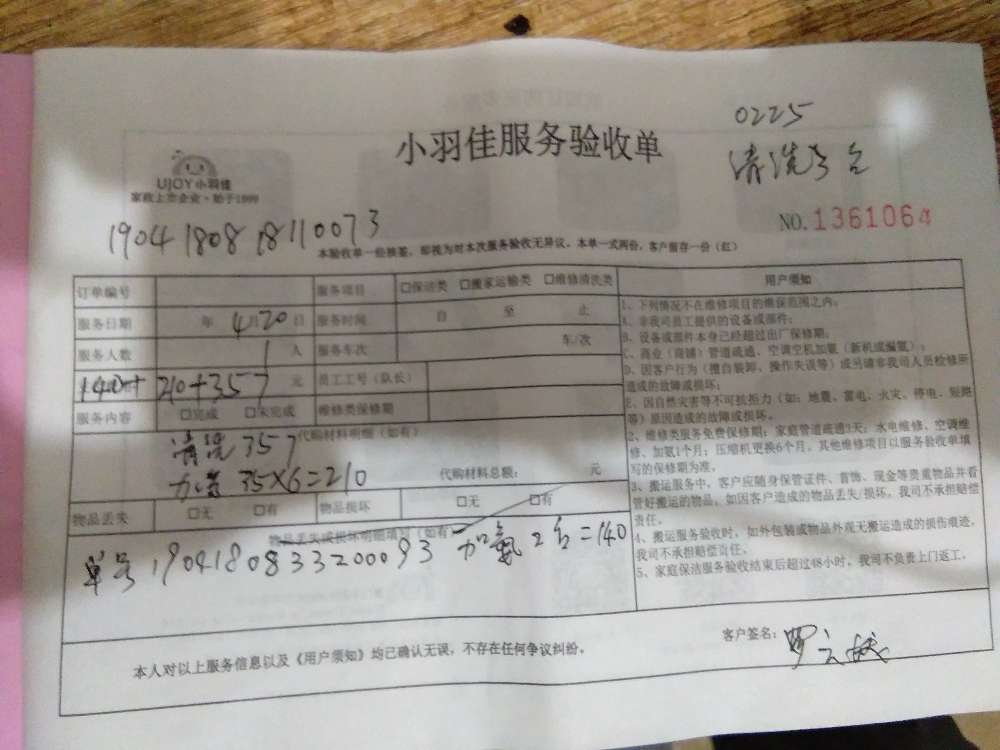 0225
小羽佳服务验收单
清洗3台
UJOY小羽佳
家政上市企业·始于1999
NO.1361064
1904180818110073
本验收单一经换签，即视为对本次服务验收无异议。本单一式两份，客户留存一份（红）
订单编号 服务项目 □保洁类 □搬家运输类 □维修清洗类
服务日期 年 4月20日 服务时间 自 至 止
服务人数 1 人 服务车次 车/次
140+ 210+357 元 员工工号（队长）
服务内容 □完成 □未完成 维修类保修期
代购材料明细（如有）
清洗357
35×6=210
代购材料总额： 元
物品丢失 □无 □有 物品损坏 □无 □有
物品丢失或损坏明细填写（如有）
单号1904180833200093 加氟2台=140
用户须知
1、下列情况不在维修项目的维保范围之内：
A、非我司员工提供的设备或部件；
B、设备或部件本身已经超过出厂保修期；
C、商业（商铺）管道疏通、空调空机加氨（新机或漏氨）；
D、因客户行为（擅自装卸、操作失误等）或另请非我司人员检修所
造成的故障或损坏；
E、因自然灾害等不可抗拒力（如：地震、雷电、火灾、停电、短路
等）原因造成的故障或损坏。
2、维修类服务免费保修期：家庭管道疏通3天；水电维修、空调维
修、加氨1个月；压缩机更换6个月。其他维修项目以服务验收单填
写的保修期为准。
3、搬运服务中，客户应随身保管证件、首饰、现金等贵重物品并看
管好搬运的物品，如因客户造成的物品丢失/损坏，我司不承担赔偿
责任。
4、搬运服务验收时，如外包装或物品外观无搬运造成的损伤痕迹，
我司不承担赔偿责任。
5、家庭保洁服务验收结束后超过48小时，我司不负责上门返工。
本人对以上服务信息以及《用户须知》均已确认无误，不存在任何争议纠纷。
客户签名：